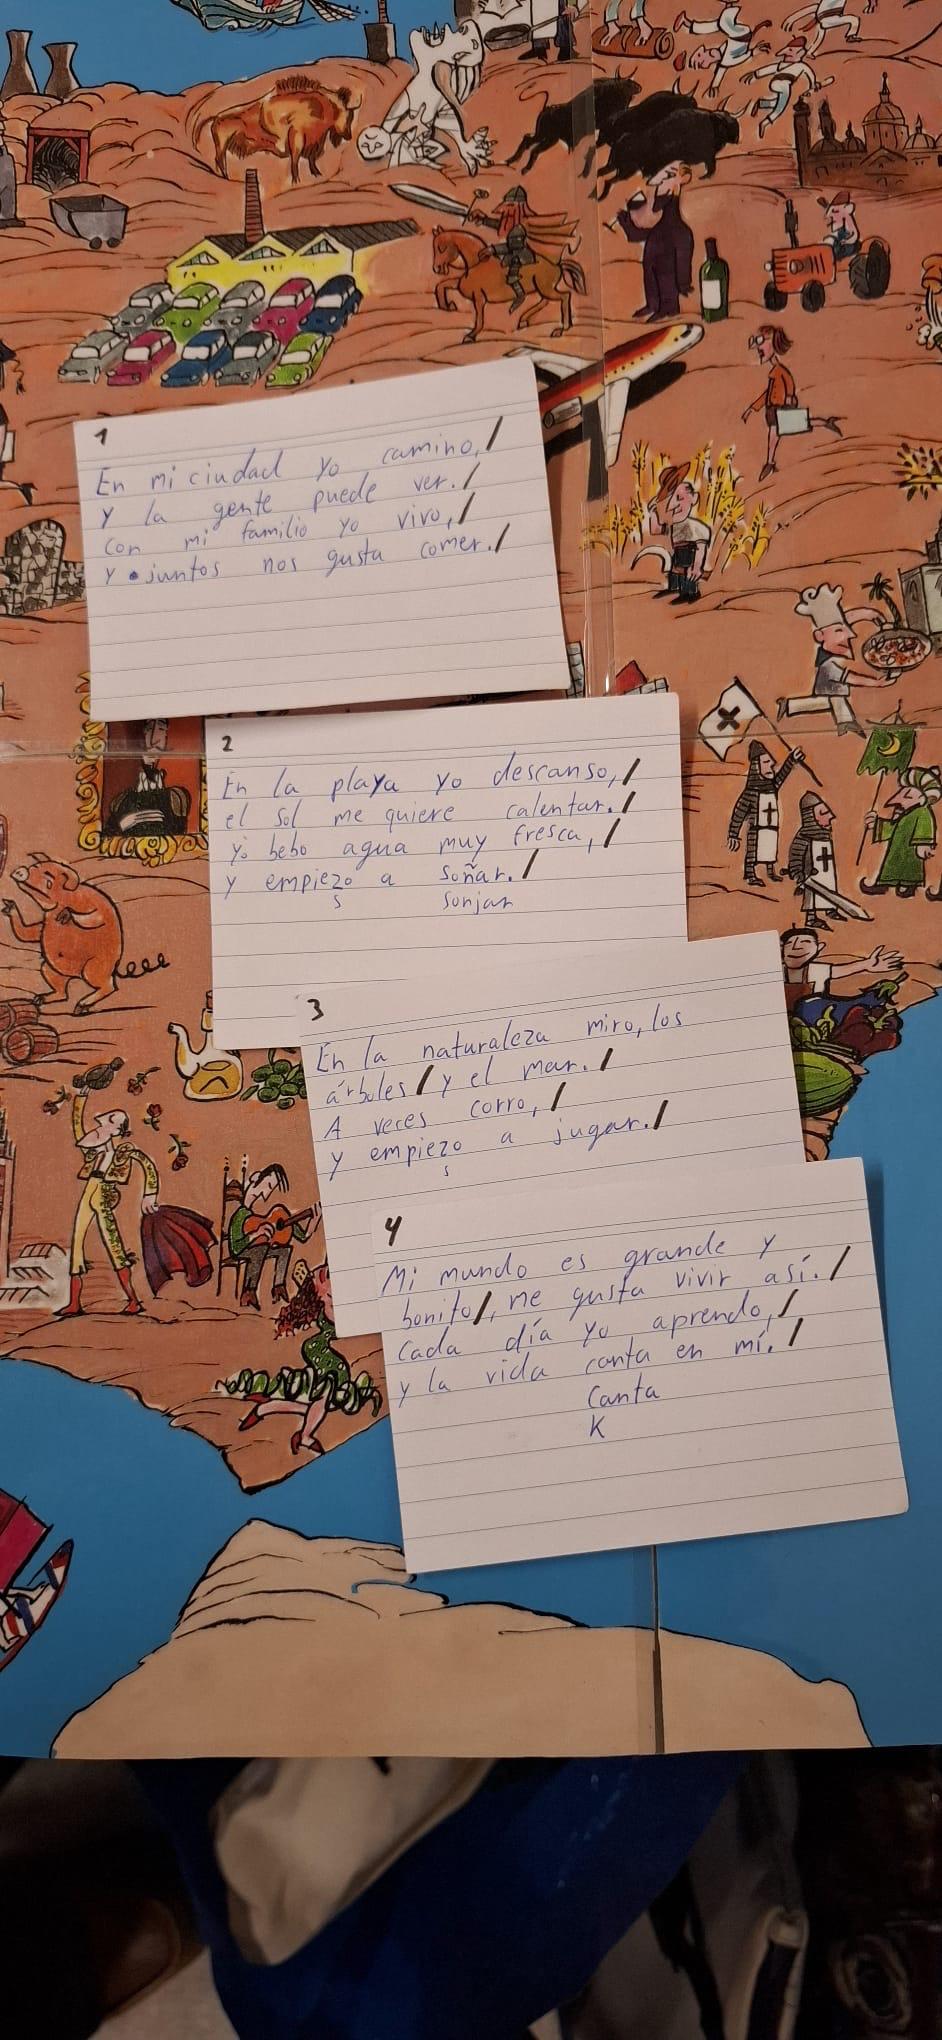 1
En mi ciudad yo camino,/
y la gente puede ver./
con mi familio yo vivo,/
y juntos nos gusta comer./
2
En la playa yo descanso,/
el sol me quiere calentar./
yo bebo agua muy fresca,/
y empiezo a soñar./
s sonjar
3
En la naturaleza miro, los
árboles/y el mar./
A veces corro,/
y empiezo a jugar./
s
4
Mi mundo es grande y
bonito/, me gusta vivir así./
Cada día yo aprendo,/
y la vida canta en mí./
Canta
K